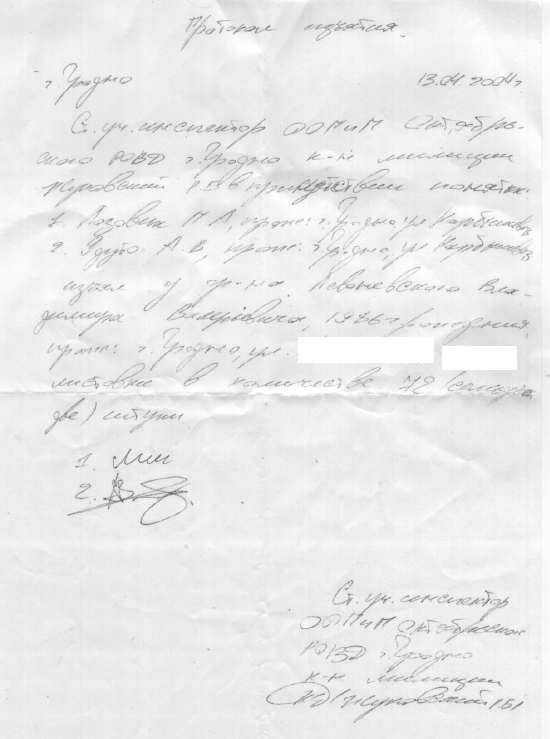 Протокол изъятия.
г. Гродно 13.04.2004г
Ст. уч. инспектор ООПиП Октябрь-
ского РОВД г. Гродно к-н милиции
Жуковский в присутствии понятых:
1. г. Гродно, ул
2. А. В, г. Гродно, ул
изъял у гр-на. Левоневского Вла-
димира Валерьевича, 1986г рождения,
прож: г. Гродно, ул.
листовки в количестве 72 (семьдесят
две) штуки.
1.
2.
Ст. уч. инспектор
ООПиП Октябрьского
РОВД г. Гродно
к-н милиции
Жуковский